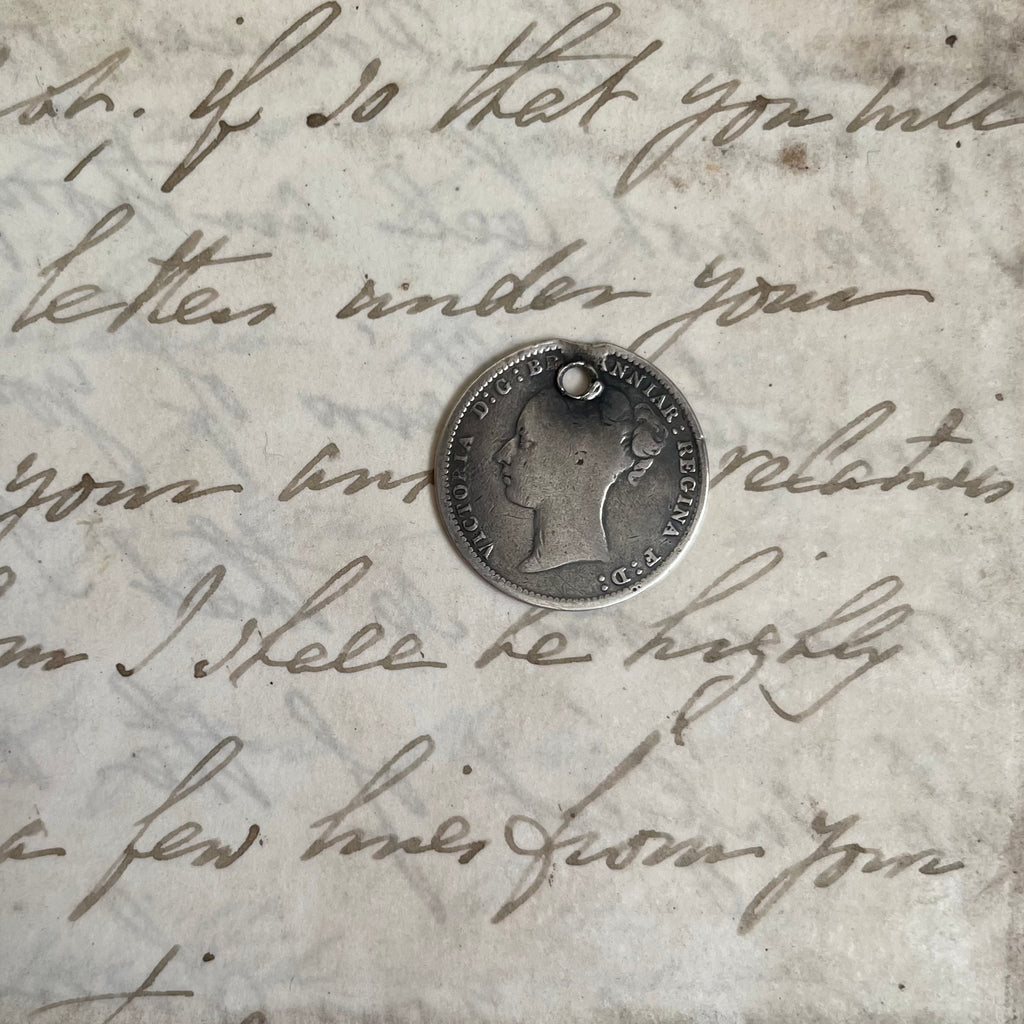 if so that you will
letters under your
your and relatives
I shall be highly
a few lines from you
VICTORIA D:G:BR ANNIAR: REGINA F:D: